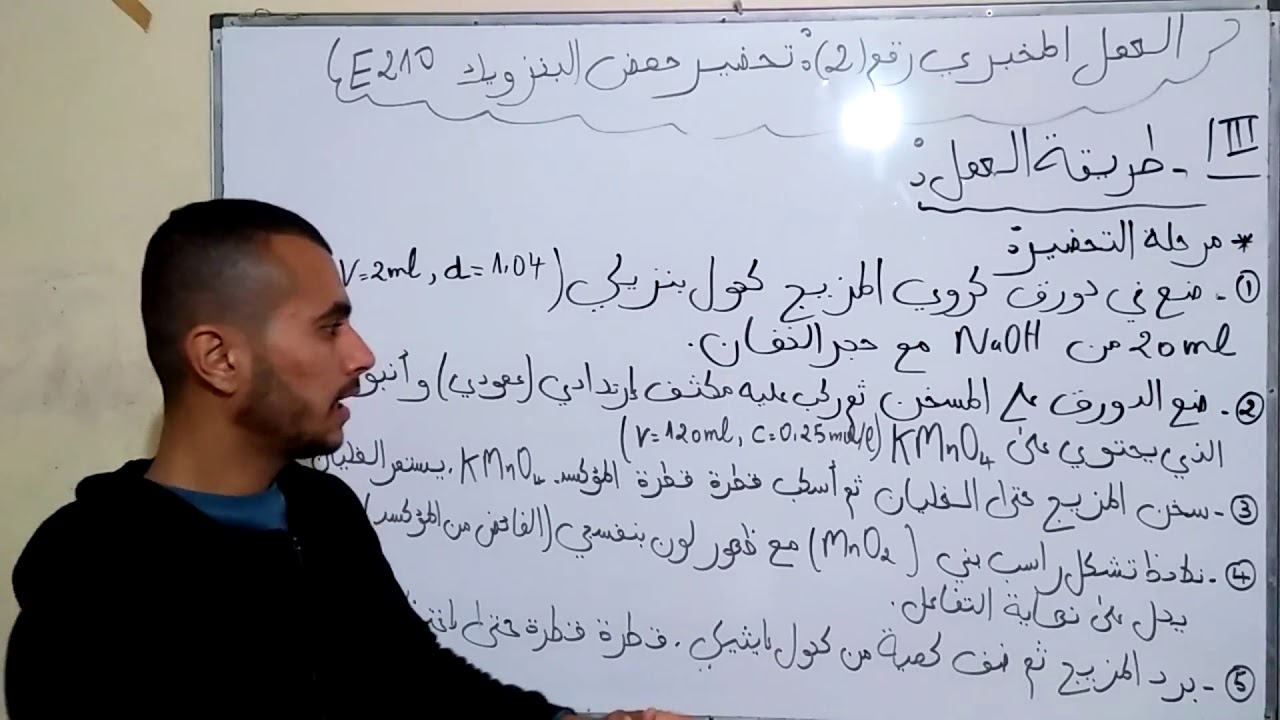 العمل المخبري رقم (2): تحضير حمض البنزويك E210)
III - طريقة العمل:
* مرحلة التحضير:
① - ضع في دورق كروي المزيج كحول بنزيلي (V=2ml, d=1,04
20ml من NaOH مع حجر الخفان.
② - ضع الدورق على المسخن ثم ركب عليه مكثف إرتدادي (عمودي) و
الذي يحتوي على KMnO4 (V=120ml, C=0,25mol/l)
③ - سخن المزيج حتى الغليان ثم أسكب قطرة قطرة المؤكسد KMnO4. يستمر الغليان
④ - نلاحظ تشكل راسب بني (MnO2) مع ظهور لون بنفسجي (الفائض من المؤكسد)
يدل على نهاية التفاعل.
⑤ - برد المزيج ثم ضف كمية من كحول الإيثيلي. قطرة قطرة حتى